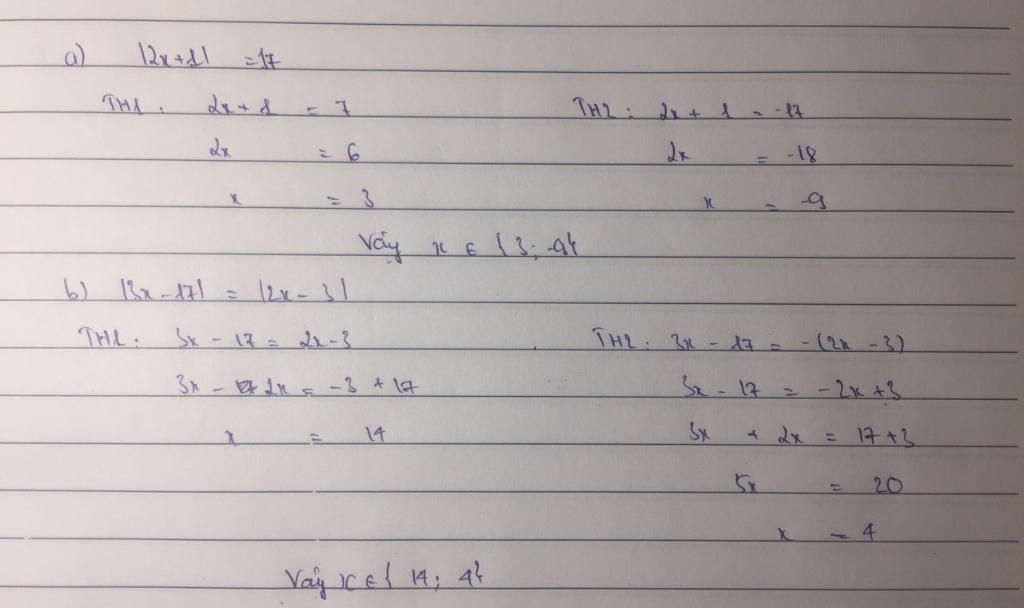 a) |2x+1| = 17
TH1 : 2x + 1 = 7
TH2 : 2x + 1 = -17
2x = 6
2x = -18
x = 3
x = -9
Vậy x ∈ { 3; -9}
b) |3x - 17| = |2x - 3|
TH1 : 3x - 17 = 2x - 3
TH2 : 3x - 17 = -(2x - 3)
3x - 2x = -3 + 17
3x - 17 = -2x + 3
x = 14
3x + 2x = 17 + 3
5x = 20
x = 4
Vậy x ∈ { 14; 4}